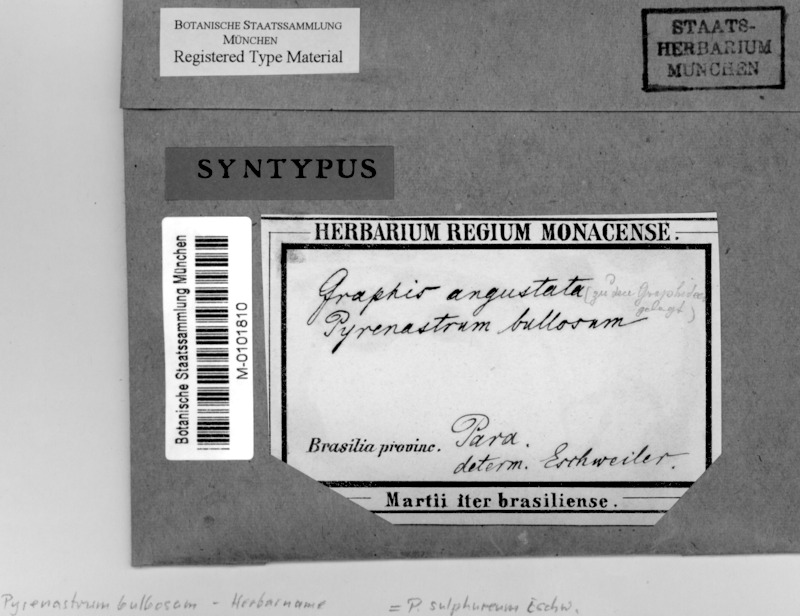 BOTANISCHE STAATSSAMMLUNG
MÜNCHEN
Registered Type Material
STAATS-
HERBARIUM
MÜNCHEN
SYNTYPUS
Botanische Staatssammlung München
M-0101810
HERBARIUM REGIUM MONACENSE.
Graphis angustata (zu den Graphideen
gelegt)
Pyrenastrum bullosum
Brasilia provinc. Para.
determ. Eschweiler.
Martii iter brasiliense.
Pyrenastrum bullosum - Herbarname = P. sulphureum Eschw.